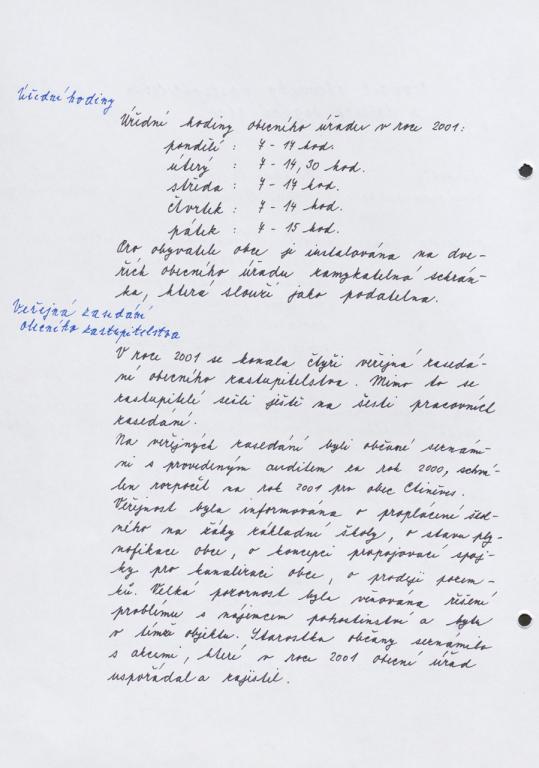 Úřední hodiny
Úřední hodiny obecního úřadu v roce 2001:
pondělí : 7 - 17 hod.
úterý : 7 - 14,30 hod.
středa : 7 - 17 hod.
čtvrtek : 7 - 14 hod.
pátek : 7 - 15 hod.
Pro obyvatele obce je instalována na dve-
řích obecního úřadu zamykatelná schrán-
ka, která slouží jako podatelna.
Veřejná zasedání
obecního zastupitelstva
V roce 2001 se konala čtyři veřejná zasedá-
ní obecního zastupitelstva. Mimo to se
zastupitelé sešli ještě na šesti pracovních
zasedání.
Na veřejných zasedání byli občané seznám-
mi s provedeným auditem za rok 2000, schvá-
len rozpočet na rok 2001 pro obec Ctiněves.
Veřejnost byla informována o proplácení šed-
ného na žáky základní školy, o stavu ply-
nofikace obce, o koncepci propojovací spoj-
ky pro kanalizaci obce, o prodeji pozem-
ků. Velká pozornost byla věnována řešení
problému s nájemcem pohostinství a bytu
v tomže objektu. Starostka občany seznámila
s akcemi, které v roce 2001 obecní úřad
uspořádal a zajistil.